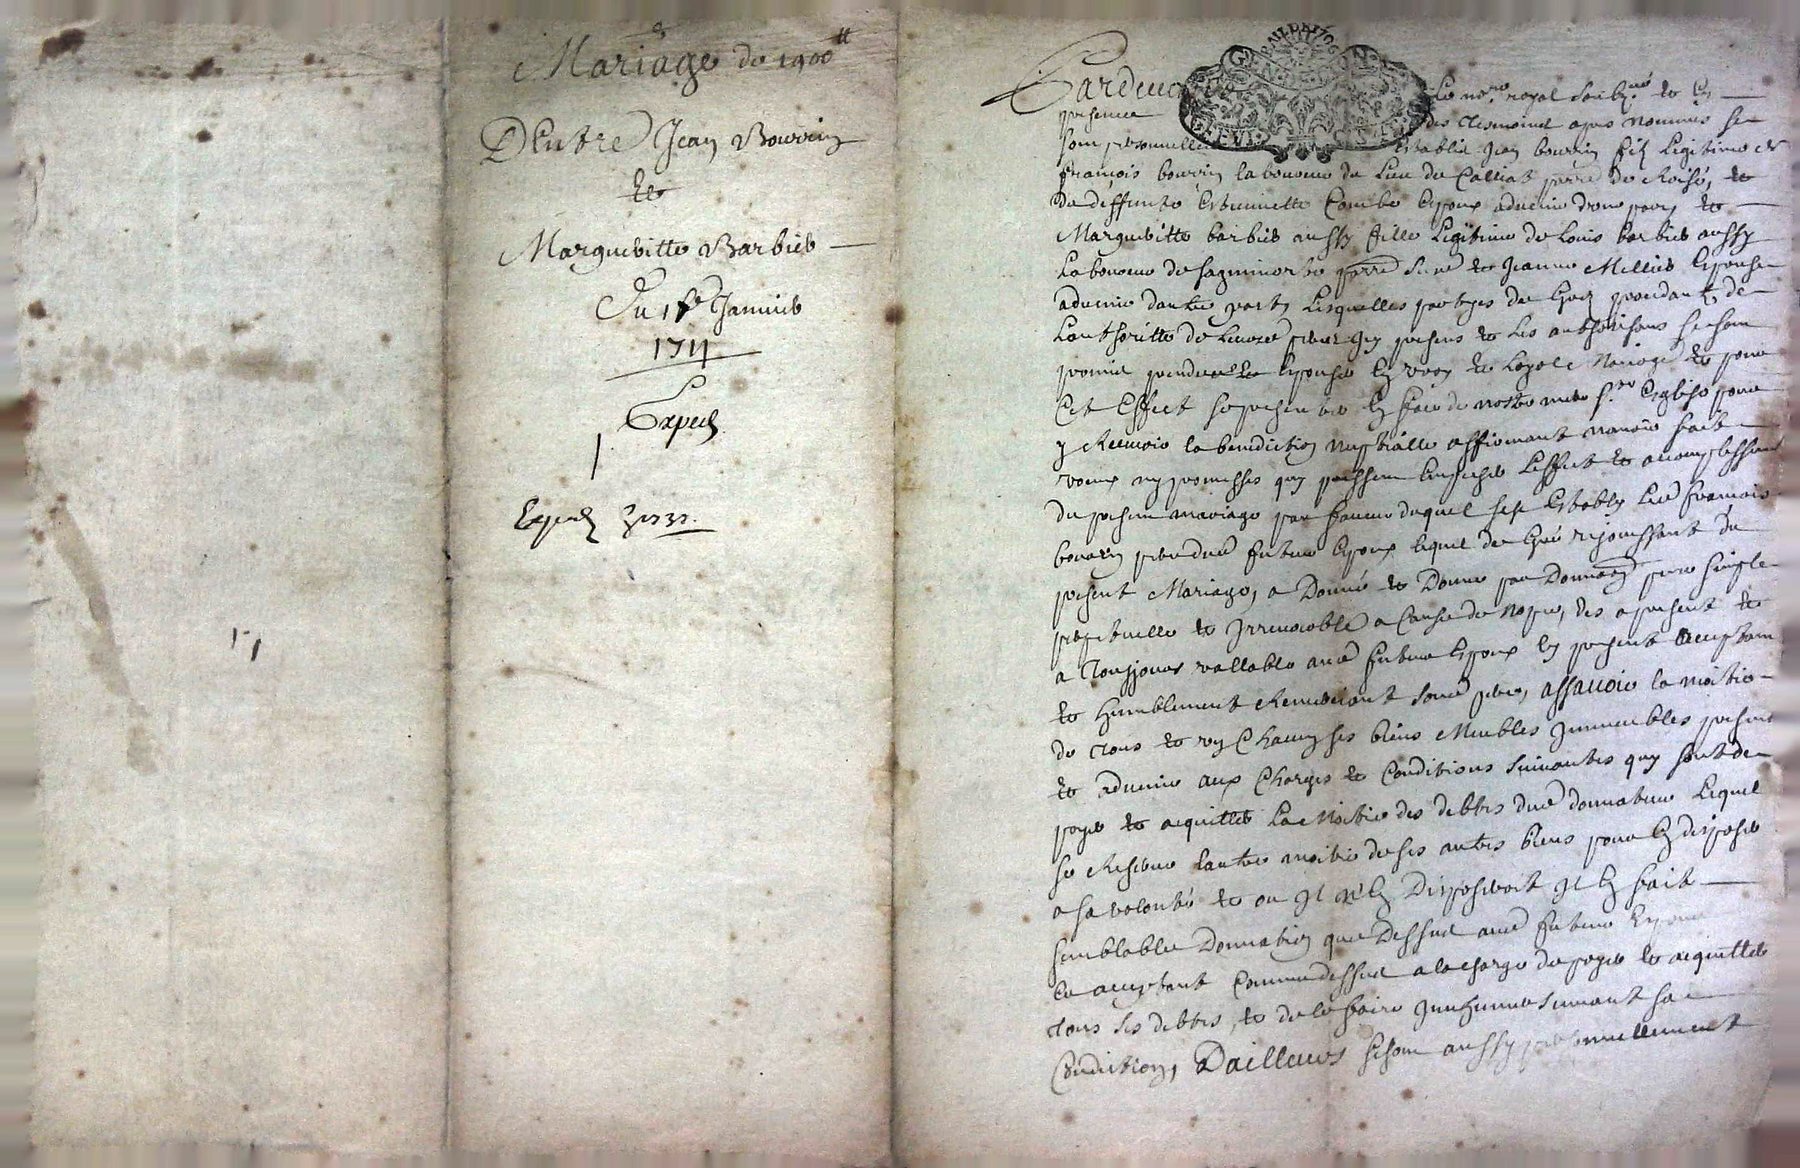 Mariage de 1900#
D'Entre Jean Bourrin
et
Margueritte Barbier
Du Janvier
1711
Exped
Exped
Pardevant Le no.re royal soubz.né et en
presence des tesmoins apres nommes se
sont personnellem establis Jean bourrin filz Legitime de
françois bourrin laboureur du Lieu de Calliat de et
de deffunte Estiennette Combe Espoux advenir d'une part et
Marguerite barbier aussy fille Legitime de Louis barbier aussy
Laboureur de et Jeanne Mellier Espouse
advenir dautre part Lesquelles parties de Gré procedant de
L'authoritte de Leurs peres Icy presens et Les authorisans se sont
promis prendre et Espouser En vray et Loyal Mariage et pour
Cet Effect se presenter En face de nostre mere s.te Esglise pour
y Recevoir la benediction nuptialle affirmant n'avoir fait
vœux ny promesses quy puissent Empescher L'effect et accomplissement
du present mariage par faveur duquel s'est Estably Led françois
bourrin pere dud futur Espoux lequel de Gré rejouissant du
present Mariage, a Donné et Donne par Donnaõn pure simple
perpetuelle et Irrevocable a Cause de nopce, des a present et
a Tousjours vallable aud futur Espoux Ey present acceptant
et humblement Remerciant sond pere, assavoir la moitie
de Tous et ung Chacung ses biens Meubles Immeubles present
et advenir aux Charges et Conditions suivantes quy sont de
payer et acquitter La Moitie des debtes dud donnateur Lequel
se Reserve lautre moitie de ses autres biens pour En disposer
a sa volonté et ou Il n'En Disposeroit Il En fait
semblable Donnation que Dessus aud futur Espoux
Ce acceptant Comme dessus a la charge de payer et acquitter
Tous ses debtes, et de le faire Inhumer suivant sa
Condition, Dailleurs se sont aussy personnellement